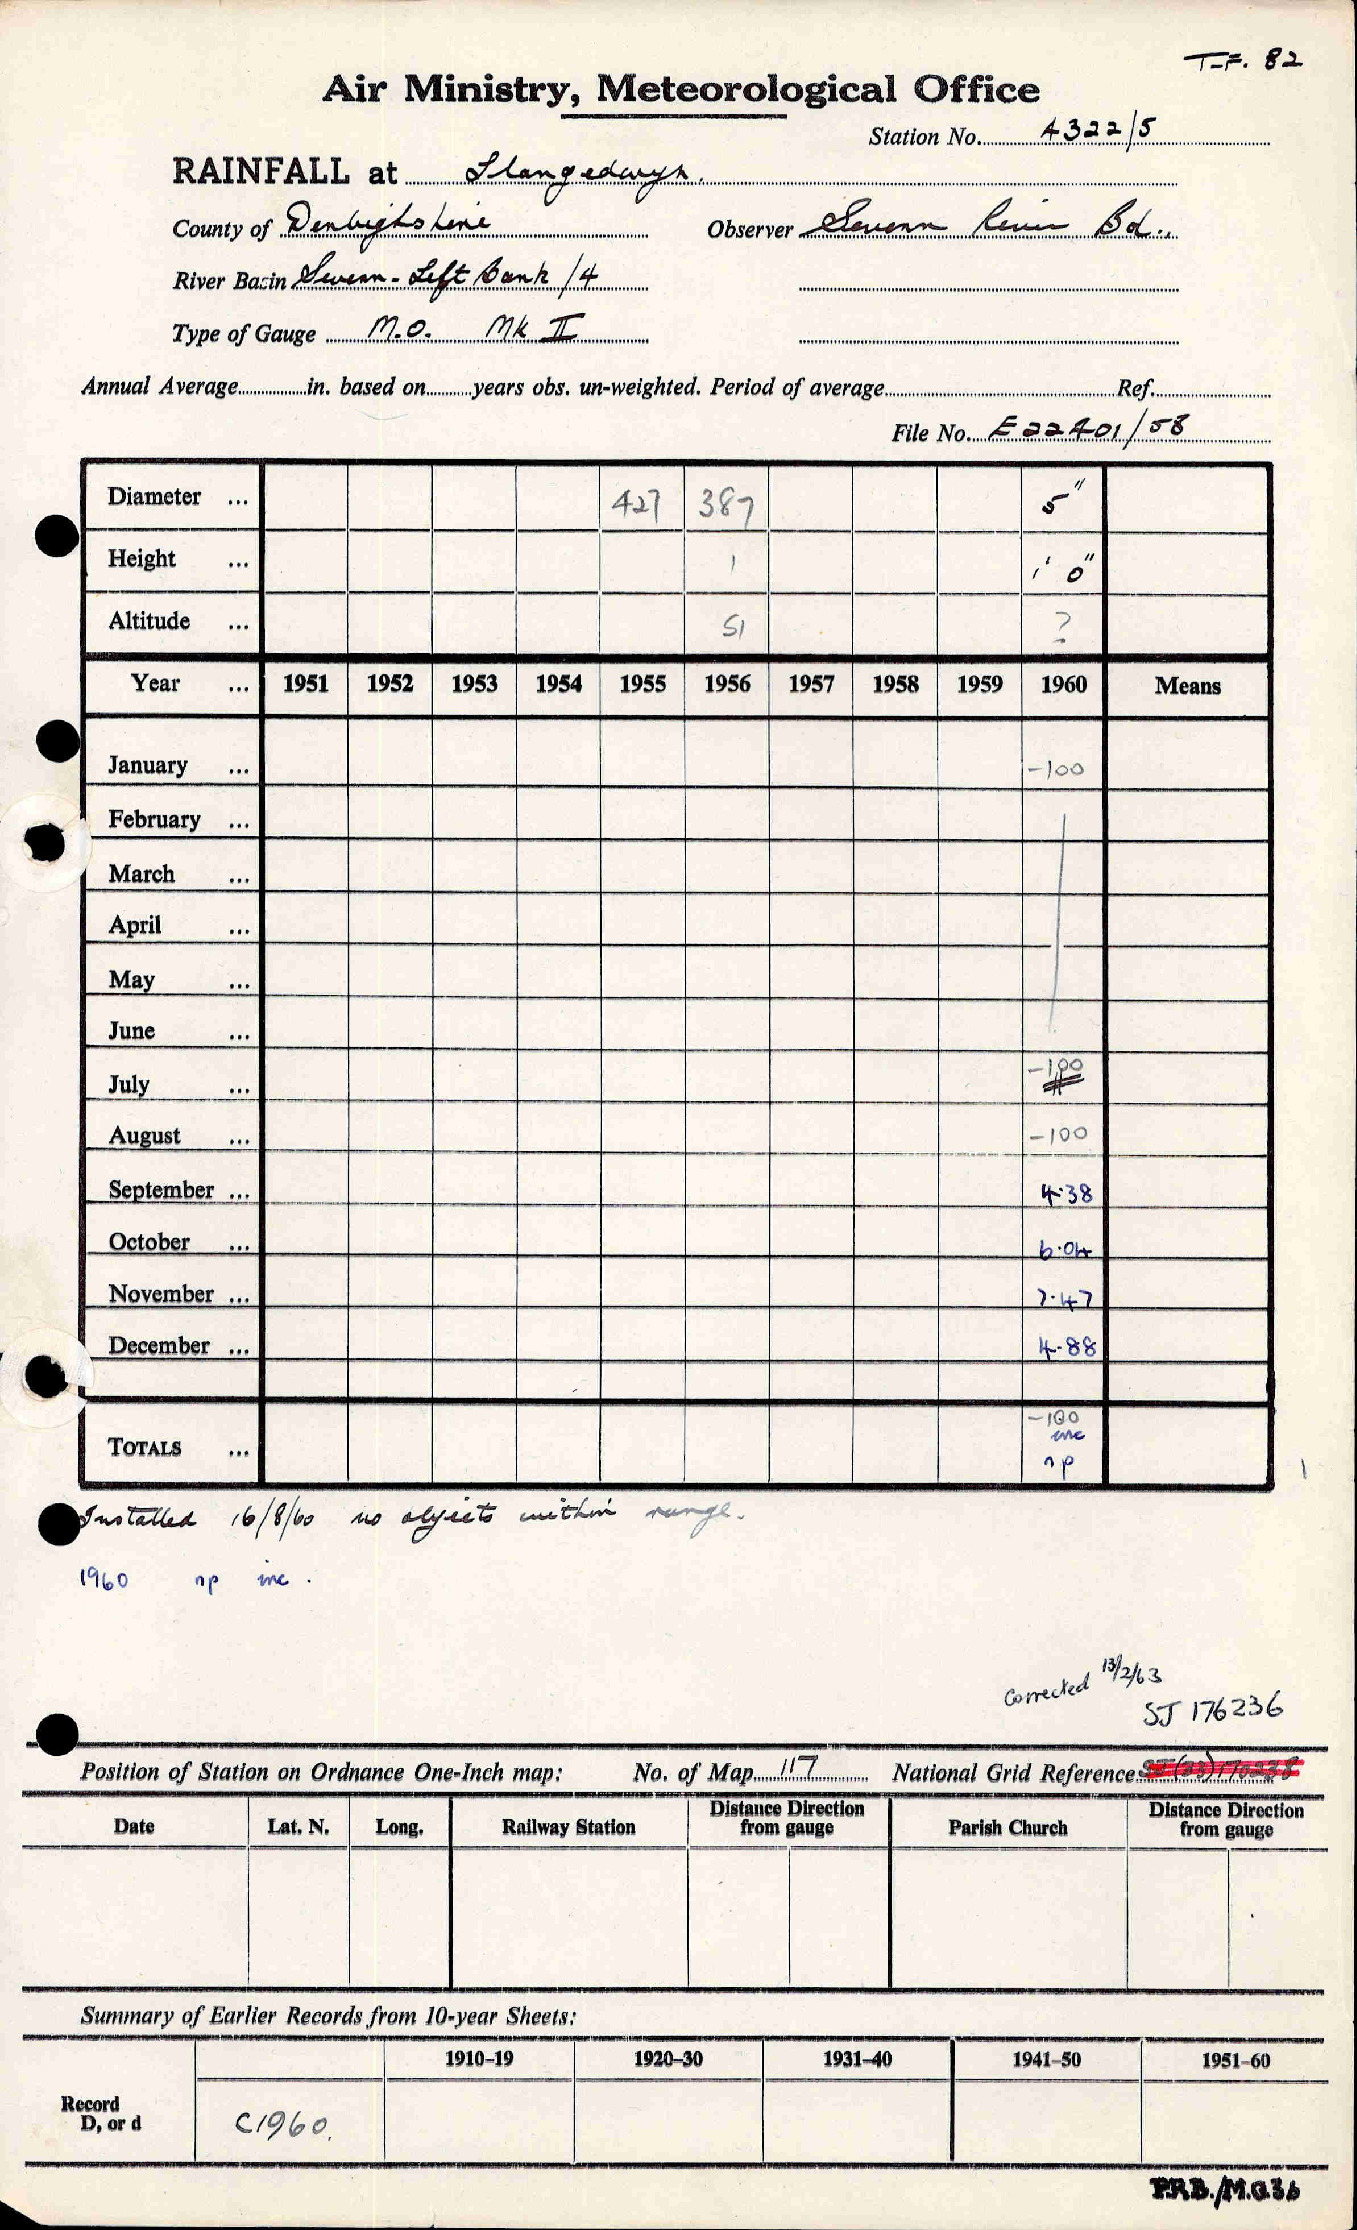 T-F. 82
Air Ministry, Meteorological Office
Station No. 4322/5
RAINFALL at Llangedwyn.
County of Denbighshire Observer Severn River Bd.
River Basin Severn - Left Bank /4
Type of Gauge M.O. Mk II
Annual Average in. based on years obs. un-weighted. Period of average Ref.
File No. E22401/58
Diameter ... 427 387 5"
Height ... 1 1' 0"
Altitude ... 51 ?
Year ... 1951 1952 1953 1954 1955 1956 1957 1958 1959 1960 Means
January ... -100
February ...
March ...
April ...
May ...
June ...
July ... -100
August ... -100
September ... 4.38
October ... 6.04
November ... 7.47
December ... 4.88
TOTALS ... -100
inc
np
Installed 16/8/60 no objects within range.
1960 np inc.
Corrected 13/2/63
SJ 176236
Position of Station on Ordnance One-Inch map: No. of Map 117 National Grid Reference
Date Lat. N. Long. Railway Station Distance Direction from gauge Parish Church Distance Direction from gauge
Summary of Earlier Records from 10-year Sheets:
1910–19 1920–30 1931–40 1941–50 1951–60
Record
D, or d C1960.
P.R.B./M.O.3b